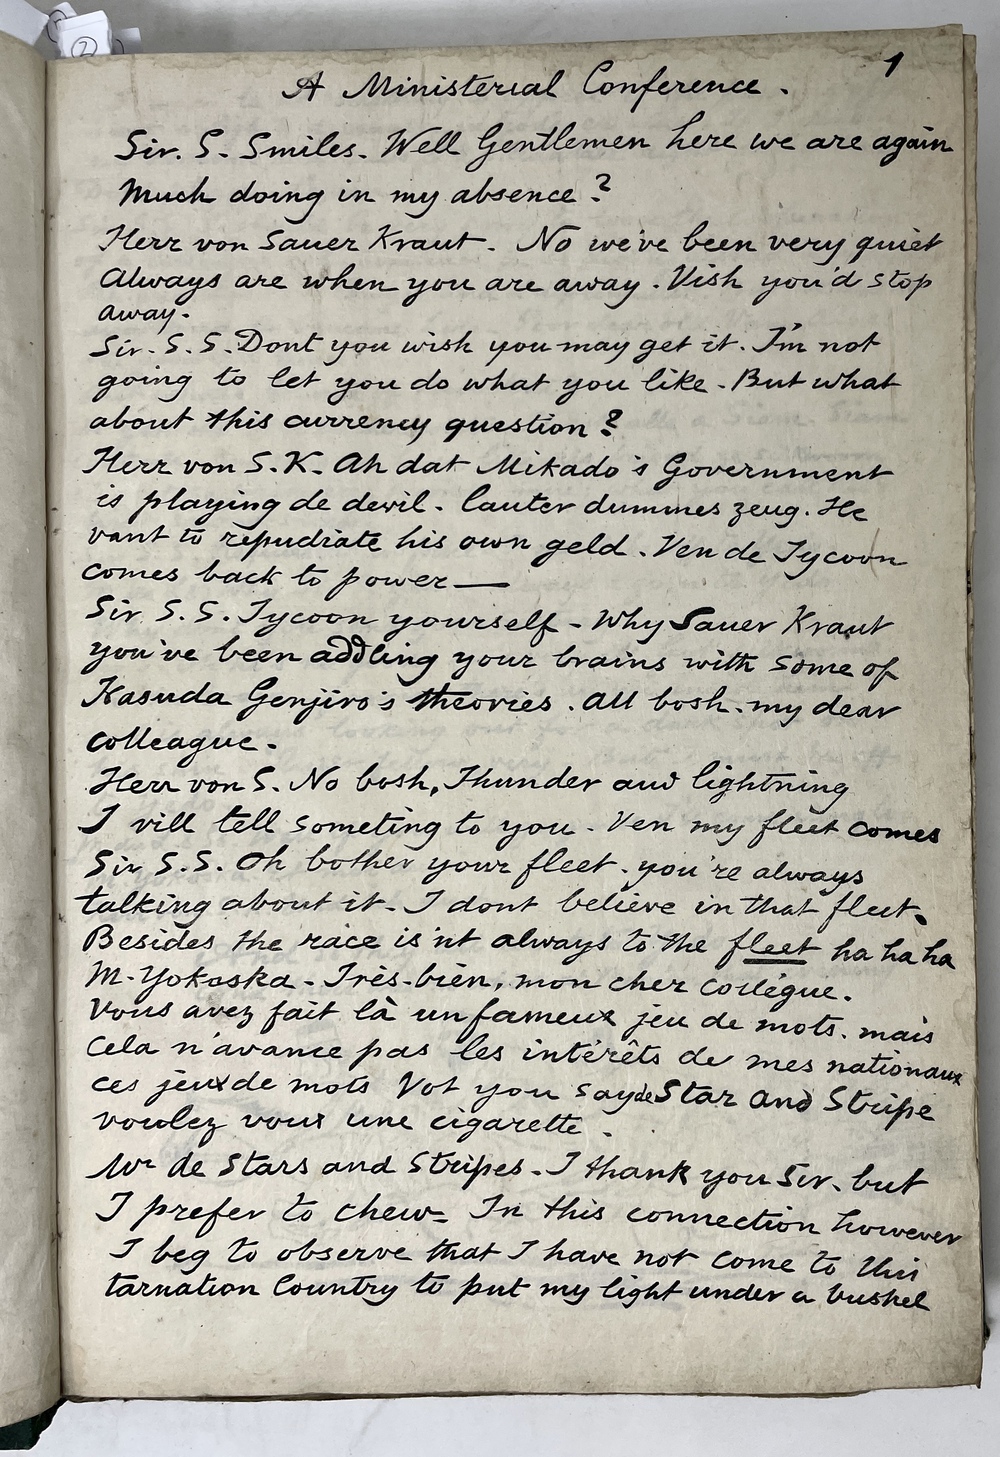 2
1
A Ministerial Conference.
Sir. S. Smiles. Well Gentlemen here we are again
Much doing in my absence?
Herr von Sauer Kraut. No we've been very quiet
Always are when you are away. Vish you'd stop
away.
Sir. S. S. Dont you wish you may get it. I'm not
going to let you do what you like. But what
about this currency question?
Herr von S. K. Ah dat Mikado's Government
is playing de devil. Lauter dummes zeug. He
vant to repudiate his own geld. Ven de Tycoon
comes back to power—
Sir S. S. Tycoon yourself - Why Sauer Kraut
you've been addling your brains with some of
Kasuda Genjiro's theories. All bosh. my dear
colleague.
Herr von S. No bosh, Thunder and lightning
I vill tell someting to you. Ven my fleet comes
Sir S. S. Oh bother your fleet. you're always
talking about it. I dont believe in that fleet.
Besides the race is'nt always to the fleet ha ha ha
M. Yokoska. Très-bien, mon cher collégue.
Vous avez fait là un fameux jeu de mots. mais
cela n'avance pas les intérêts de mes nationaux
ces jeux de mots Vot you say de Star and Stripe
voulez vous une cigarette.
Mr de Stars and Stripes. I thank you Sir. but
I prefer to chew= In this connection however
I beg to observe that I have not come to this
tarnation Country to put my light under a bushel